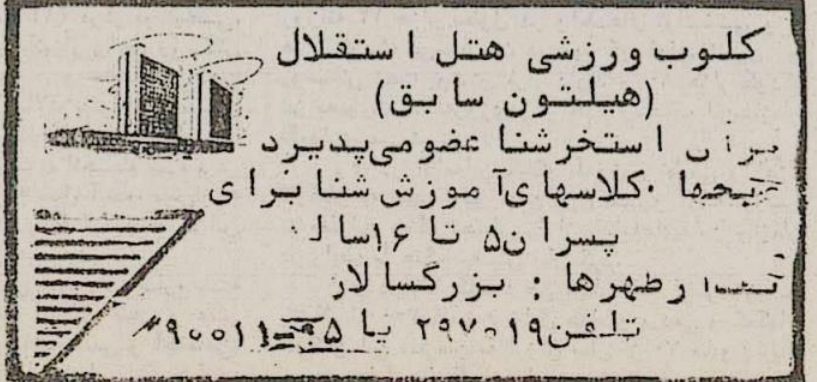 کلوب ورزشی هتل استقلال
(هیلتون سابق)
برای استخر شنا عضو می‌پذیرد
صبحها . کلاسهای آموزش شنا برای
پسران ۵ تا ۱۶ سال
بعدازظهرها : بزرگسالان
تلفن ۲۹۷۰۱۹ یا